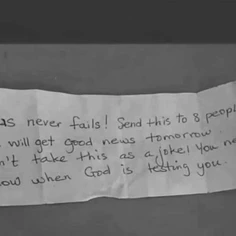 us never fails! Send this to 8 peopl
will get good news tomorrow.
n't take this as a joke! You ne
now when God is testing you.